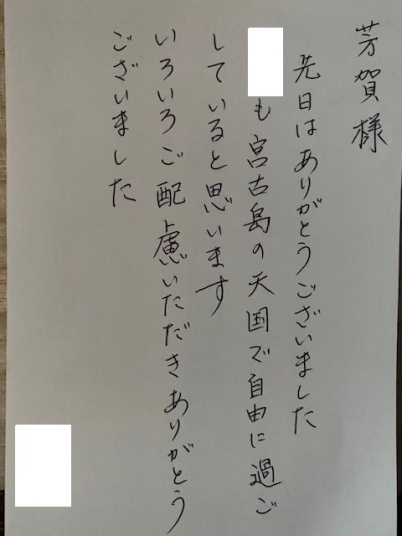 芳賀様
先日はありがとうございました
も宮古島の天国で自由に過ご
していると思います
いろいろご配慮いただきありがとう
ございました